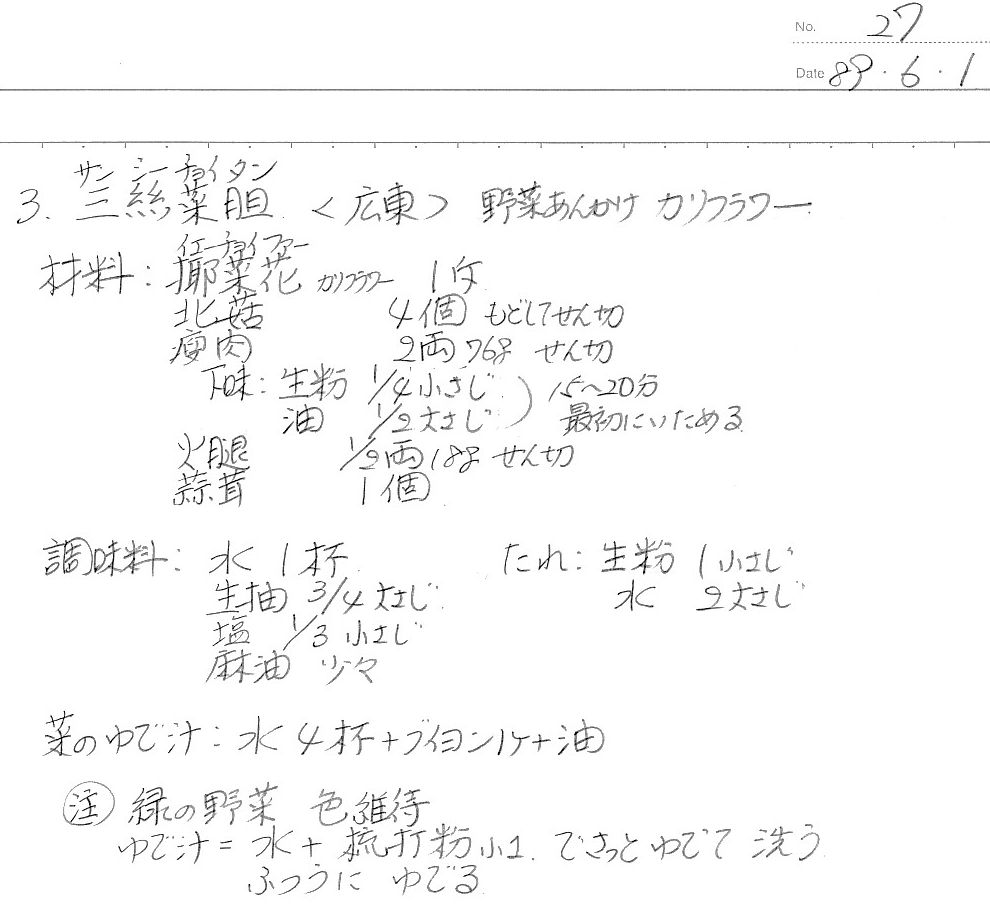 No. 27
Date 89・6・1
サン シーチョイタン
3. 三絲菜胆 <広東> 野菜あんかけ カリフラワー
イエーチョイファー
材料: 椰菜花 カリフラワー 1ケ
北菇 4個 もどしてせん切
瘦肉 2両 76g せん切
下味: 生粉 1/4小さじ ) 15~20分
油 1/2大さじ 最初にいためる
火腿 1/2両 18g せん切
蒜茸 1個
調味料: 水 1杯 たれ: 生粉 1小さじ
生抽 3/4大さじ 水 2大さじ
塩 1/3小さじ
麻油 少々
菜のゆで汁: 水 4杯+ブイヨン1ケ+油
注 緑の野菜 色維持
ゆで汁= 水+梳打粉小1. でさっとゆでて 洗う
ふつうに ゆでる